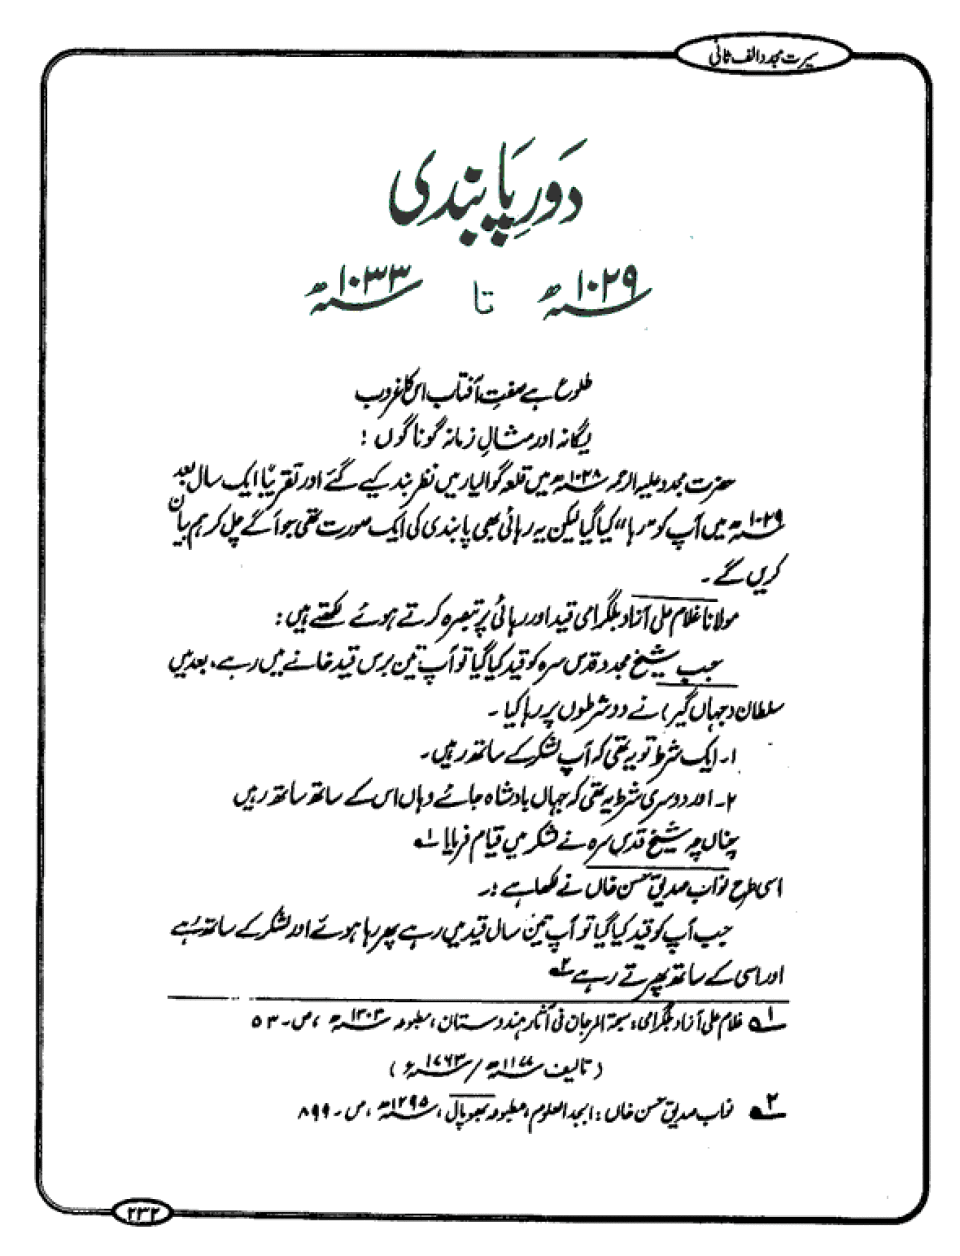 سیرت مجدد الف ثانی
دَورِ پَابندی
۱۰۲۹ھ تا ۱۰۳۳ھ
طلوع ہے صفتِ آفتاب اس کا غروب
یگانہ اور مثالِ زمانہ گوناگوں :
حضرت مجدد علیہ الرحمہ ۱۰۲۸ھ میں قلعہ گوالیار میں نظر بند کیے گئے اور تقریباً ایک سال بعد
۱۰۲۹ھ میں آپ کو "رہا" کیا گیا لیکن یہ رہائی بھی پابندی کی ایک صورت تھی جو آگے چل کر ہم بیان
کریں گے ۔
مولانا غلام علی آزاد بلگرامی قید اور رہائی پر تبصرہ کرتے ہوئے لکھتے ہیں :
جب شیخ مجدد قدس سرہ کو قید کیا گیا تو آپ تین برس قید خانے میں رہے ، بعد میں
سلطان (جہاں گیر) نے دو شرطوں پر رہا کیا ۔
۱۔ ایک شرط تو یہ تھی کہ آپ لشکر کے ساتھ رہیں ۔
۲۔ اور دوسری شرط یہ تھی کہ جہاں بادشاہ جائے وہاں اس کے ساتھ ساتھ رہیں
چناں چہ شیخ قدس سرہ نے لشکر میں قیام فرمایا ۱؎
اسی طرح نواب صدیق حسن خاں نے لکھا ہے :۔
جب آپ کو قید کیا گیا تو آپ تین سال قید میں رہے پھر رہا ہوئے اور لشکر کے ساتھ رہے
اور اسی کے ساتھ پھرتے رہے ۲؎
۱؎ غلام علی آزاد بلگرامی ، سبحۃ المرجان فی آثار ہندوستان ، مطبوعہ ۱۳۰۳ھ ، ص۔ ۵۳
( تالیف ۱۱۷۷ھ / ۱۷۶۳ء )
۲؎ نواب صدیق حسن خاں : ابجد العلوم ، مطبوعہ بھوپال ، ۱۲۹۵ھ ، ص۔ ۸۹۹
۲۳۲